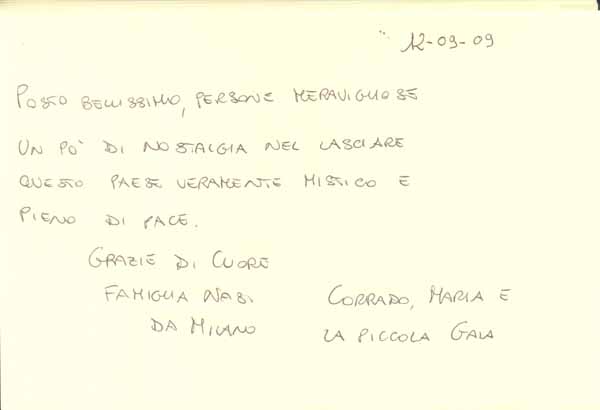 12-09-09
POSTO BELLISSIMO, PERSONE MERAVIGLIOSE
UN PO' DI NOSTALGIA NEL LASCIARE
QUESTO PAESE VERAMENTE MISTICO E
PIENO DI PACE.
GRAZIE DI CUORE
FAMIGLIA NASI
DA MILANO
CORRADO, MARIA E
LA PICCOLA GAIA